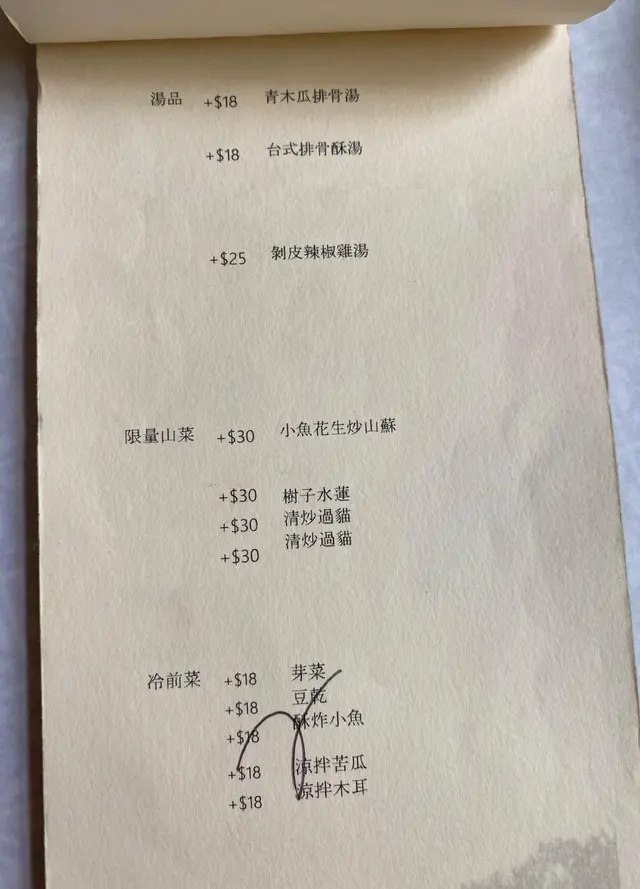 湯品 +$18 青木瓜排骨湯
+$18 台式排骨酥湯
+$25 剝皮辣椒雞湯
限量山菜 +$30 小魚花生炒山蘇
+$30 樹子水蓮
+$30 清炒過貓
+$30 清炒過貓
冷前菜 +$18 芽菜
+$18 豆乾
+$18 酥炸小魚
+$18 涼拌苦瓜
+$18 涼拌木耳